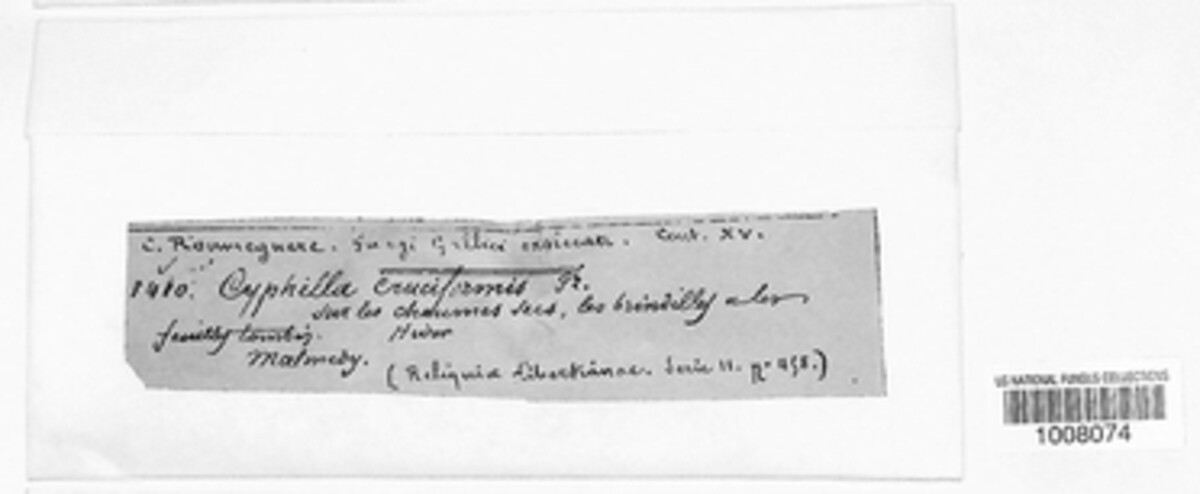 C. Roumeguere. Fungi Gallici exsiccati. Cent. XV.
1410. Cyphella cruciformis Fr.
sur les chaumes secs, les brindilles et les
feuilles tombés. Hiver
Malmedy.
(Reliquiæ Libertianae. Serie II. nº 458.)
US NATIONAL FUNGUS COLLECTIONS
1008074